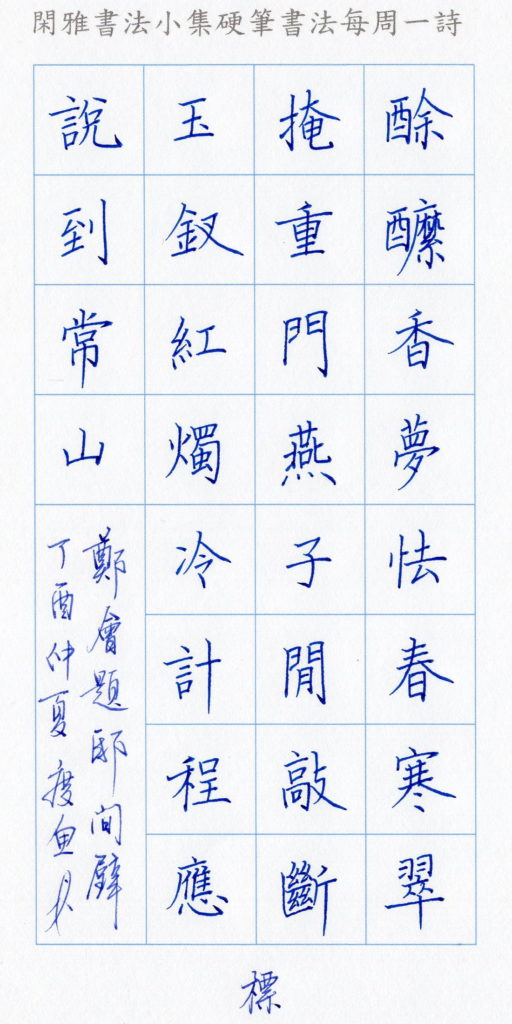 閑雅書法小集硬筆書法每周一詩
酴醾香夢怯春寒翠
掩重門燕子閒敲斷
玉釵紅燭冷計程應
說到常山
鄭會題邸間壁
丁酉仲夏
標